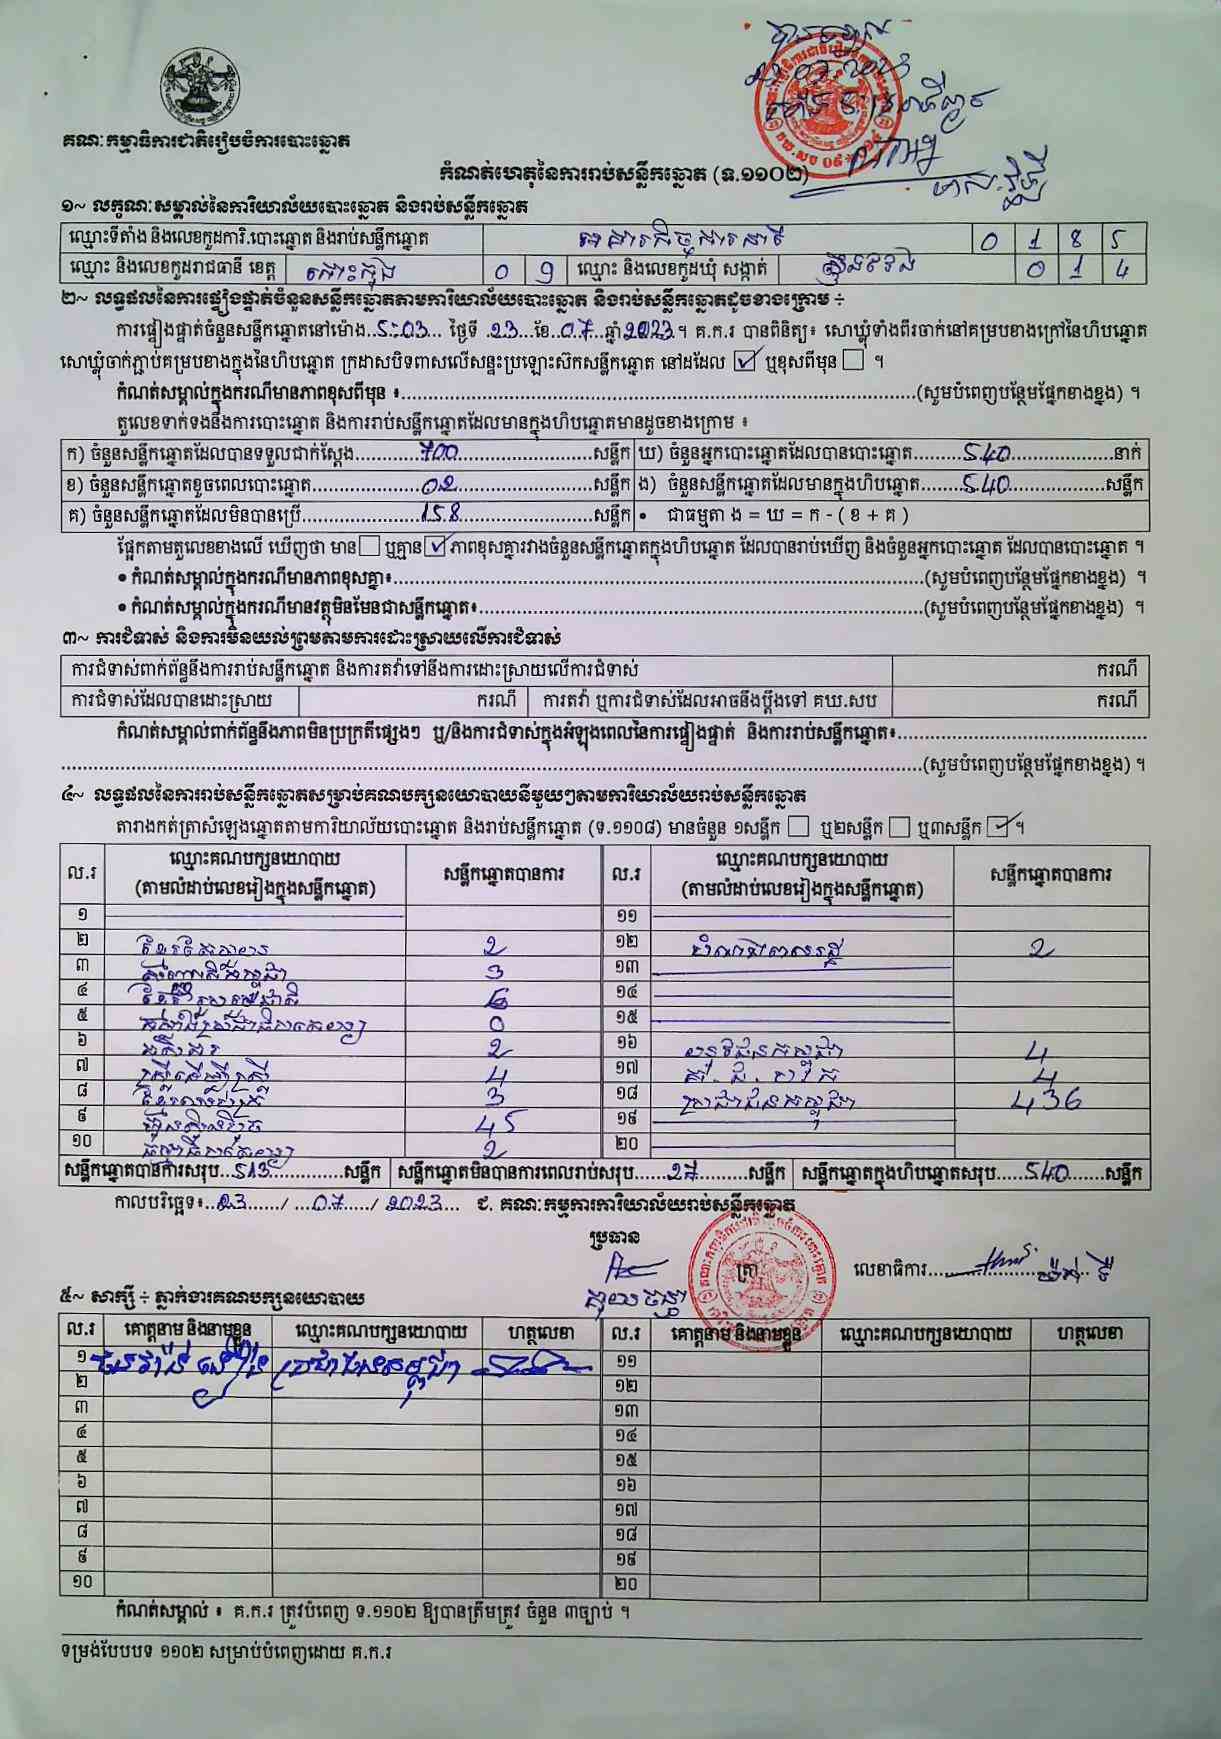 គណៈកម្មាធិការជាតិរៀបចំការបោះឆ្នោត
កំណត់ហេតុនៃការរាប់សន្លឹកឆ្នោត (ទ.១១០២)
១~ លក្ខណៈសម្គាល់នៃការិយាល័យបោះឆ្នោត និងរាប់សន្លឹកឆ្នោត
ឈ្មោះទីតាំង និងលេខកូដការិ.បោះឆ្នោត និងរាប់សន្លឹកឆ្នោត 0 1 8 5
ឈ្មោះ និងលេខកូដរាជធានី ខេត្ត កោះកុង 0 9 ឈ្មោះ និងលេខកូដឃុំ សង្កាត់ ស្ទឹងវែង 0 1 4
២~ លទ្ធផលនៃការផ្ទៀងផ្ទាត់ចំនួនសន្លឹកឆ្នោតតាមការិយាល័យបោះឆ្នោត និងរាប់សន្លឹកឆ្នោតដូចខាងក្រោម ÷
ការផ្ទៀងផ្ទាត់ចំនួនសន្លឹកឆ្នោតនៅម៉ោង..5:03... ថ្ងៃទី .23...ខែ..07..ឆ្នាំ2023។ គ.ក.រ បានពិនិត្យ៖ សោឃ្លុំទាំងពីរចាក់នៅគម្របខាងក្រៅនៃហិបឆ្នោត
សោឃ្លុំចាក់ភ្ជាប់គម្របខាងក្នុងនៃហិបឆ្នោត ក្រដាសបិទពាសលើសន្ទះប្រឡោះស៊កសន្លឹកឆ្នោត នៅដដែល ☑ ឬខុសពីមុន ☐ ។
កំណត់សម្គាល់ក្នុងករណីមានភាពខុសពីមុន ៖..........(សូមបំពេញបន្ថែមផ្នែកខាងខ្នង) ។
តួលេខទាក់ទងនឹងការបោះឆ្នោត និងការរាប់សន្លឹកឆ្នោតដែលមានក្នុងហិបឆ្នោតមានដូចខាងក្រោម ៖
ក) ចំនួនសន្លឹកឆ្នោតដែលបានទទួលជាក់ស្តែង..........700..........សន្លឹក ឃ) ចំនួនអ្នកបោះឆ្នោតដែលបានបោះឆ្នោត..........540..........នាក់
ខ) ចំនួនសន្លឹកឆ្នោតខូចពេលបោះឆ្នោត..........02..........សន្លឹក ង) ចំនួនសន្លឹកឆ្នោតដែលមានក្នុងហិបឆ្នោត..........540..........សន្លឹក
គ) ចំនួនសន្លឹកឆ្នោតដែលមិនបានប្រើ..........158..........សន្លឹក • ជាធម្មតា ង = ឃ = ក - ( ខ + គ )
ផ្អែកតាមតួលេខខាងលើ ឃើញថា មាន☐ ឬគ្មាន☑ ភាពខុសគ្នារវាងចំនួនសន្លឹកឆ្នោតក្នុងហិបឆ្នោត ដែលបានរាប់ឃើញ និងចំនួនអ្នកបោះឆ្នោត ដែលបានបោះឆ្នោត ។
• កំណត់សម្គាល់ក្នុងករណីមានភាពខុសគ្នា៖..........(សូមបំពេញបន្ថែមផ្នែកខាងខ្នង) ។
• កំណត់សម្គាល់ក្នុងករណីមានវត្ថុមិនមែនជាសន្លឹកឆ្នោត៖..........(សូមបំពេញបន្ថែមផ្នែកខាងខ្នង) ។
៣~ ការជំទាស់ និងការមិនយល់ព្រមតាមការដោះស្រាយលើការជំទាស់
ការជំទាស់ពាក់ព័ន្ធនឹងការរាប់សន្លឹកឆ្នោត និងការតវ៉ាទៅនឹងការដោះស្រាយលើការជំទាស់ ករណី
ការជំទាស់ដែលបានដោះស្រាយ ករណី ការតវ៉ា ឬការជំទាស់ដែលអាចនឹងប្តឹងទៅ គឃ.សប ករណី
កំណត់សម្គាល់ពាក់ព័ន្ធនឹងភាពមិនប្រក្រតីផ្សេងៗ ឬ/និងការជំទាស់ក្នុងអំឡុងពេលនៃការផ្ទៀងផ្ទាត់ និងការរាប់សន្លឹកឆ្នោត៖..........
..........(សូមបំពេញបន្ថែមផ្នែកខាងខ្នង) ។
៤~ លទ្ធផលនៃការរាប់សន្លឹកឆ្នោតសម្រាប់គណបក្សនយោបាយនីមួយៗតាមការិយាល័យរាប់សន្លឹកឆ្នោត
តារាងកត់ត្រាសំឡេងឆ្នោតតាមការិយាល័យបោះឆ្នោត និងរាប់សន្លឹកឆ្នោត (ទ.១១០៨) មានចំនួន ១សន្លឹក ☐ ឬ២សន្លឹក ☐ ឬ៣សន្លឹក ☑ ។
ល.រ ឈ្មោះគណបក្សនយោបាយ (តាមលំដាប់លេខរៀងក្នុងសន្លឹកឆ្នោត) សន្លឹកឆ្នោតបានការ ល.រ ឈ្មោះគណបក្សនយោបាយ (តាមលំដាប់លេខរៀងក្នុងសន្លឹកឆ្នោត) សន្លឹកឆ្នោតបានការ
១ ១១
២ 2 ១២ 2
៣ 3 ១៣
៤ 6 ១៤
៥ 0 ១៥
៦ 2 ១៦ 4
៧ 4 ១៧ 4
៨ 3 ១៨ ប្រជាជនកម្ពុជា 436
៩ ហ្វ៊ុនស៊ិនប៉ិច 45 ១៩
១០ 2 ២០
សន្លឹកឆ្នោតបានការសរុប...513..........សន្លឹក សន្លឹកឆ្នោតមិនបានការពេលរាប់សរុប......27..........សន្លឹក សន្លឹកឆ្នោតក្នុងហិបឆ្នោតសរុប.....540.......សន្លឹក
កាលបរិច្ឆេទ៖..23....../ ...07...../ 2023... ជ. គណៈកម្មការការិយាល័យរាប់សន្លឹកឆ្នោត
ប្រធាន
ត្រា លេខាធិការ..........
៥~ សាក្សី ÷ ភ្នាក់ងារគណបក្សនយោបាយ
ល.រ គោត្តនាម និងនាមខ្លួន ឈ្មោះគណបក្សនយោបាយ ហត្ថលេខា ល.រ គោត្តនាម និងនាមខ្លួន ឈ្មោះគណបក្សនយោបាយ ហត្ថលេខា
១ ប្រជាជនកម្ពុជា ១១
២ ១២
៣ ១៣
៤ ១៤
៥ ១៥
៦ ១៦
៧ ១៧
៨ ១៨
៩ ១៩
១០ ២០
កំណត់សម្គាល់ ៖ គ.ក.រ ត្រូវបំពេញ ទ.១១០២ ឱ្យបានត្រឹមត្រូវ ចំនួន ៣ច្បាប់ ។
ទម្រង់បែបបទ ១១០២ សម្រាប់បំពេញដោយ គ.ក.រ